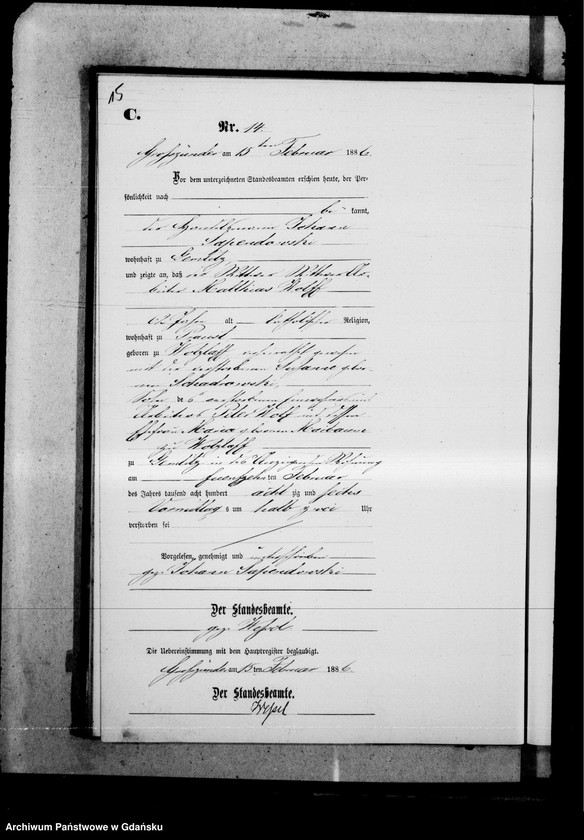 15
C.
Nr. 14.
Großzünder am 15ten Februar 1886.
Vor dem unterzeichneten Standesbeamten erschien heute, der Per-
sönlichkeit nach
be kannt,
der Johann
Sapendowski
wohnhaft zu Gemlitz
und zeigte an, daß der Wittwer
beiter Matthias Wolff
62 Jahre alt katholischer Religion,
wohnhaft zu Praust
geboren zu Wotzlaff gewesen
mit der verstorbenen Susanne gebo-
renen
Sohn des verstorbenen
Arbeiters Peter Wolf und dessen
Ehefrau Maria geborenen
zu Wotzlaff
zu Gemlitz in des Anzeigenden Wohnung
am fuenfzehnten Februar
des Jahres tausend acht hundert acht zig und sechs
Vormittag s um halb zwei Uhr
verstorben sei
Vorgelesen, genehmigt und unterschrieben
gez. Johann Sapendowski
Der Standesbeamte.
gez. Wessel
Die Uebereinstimmung mit dem Hauptregister beglaubigt.
Großzünder am 15ten Februar 1886.
Der Standesbeamte.
Wessel
Archiwum Państwowe w Gdańsku